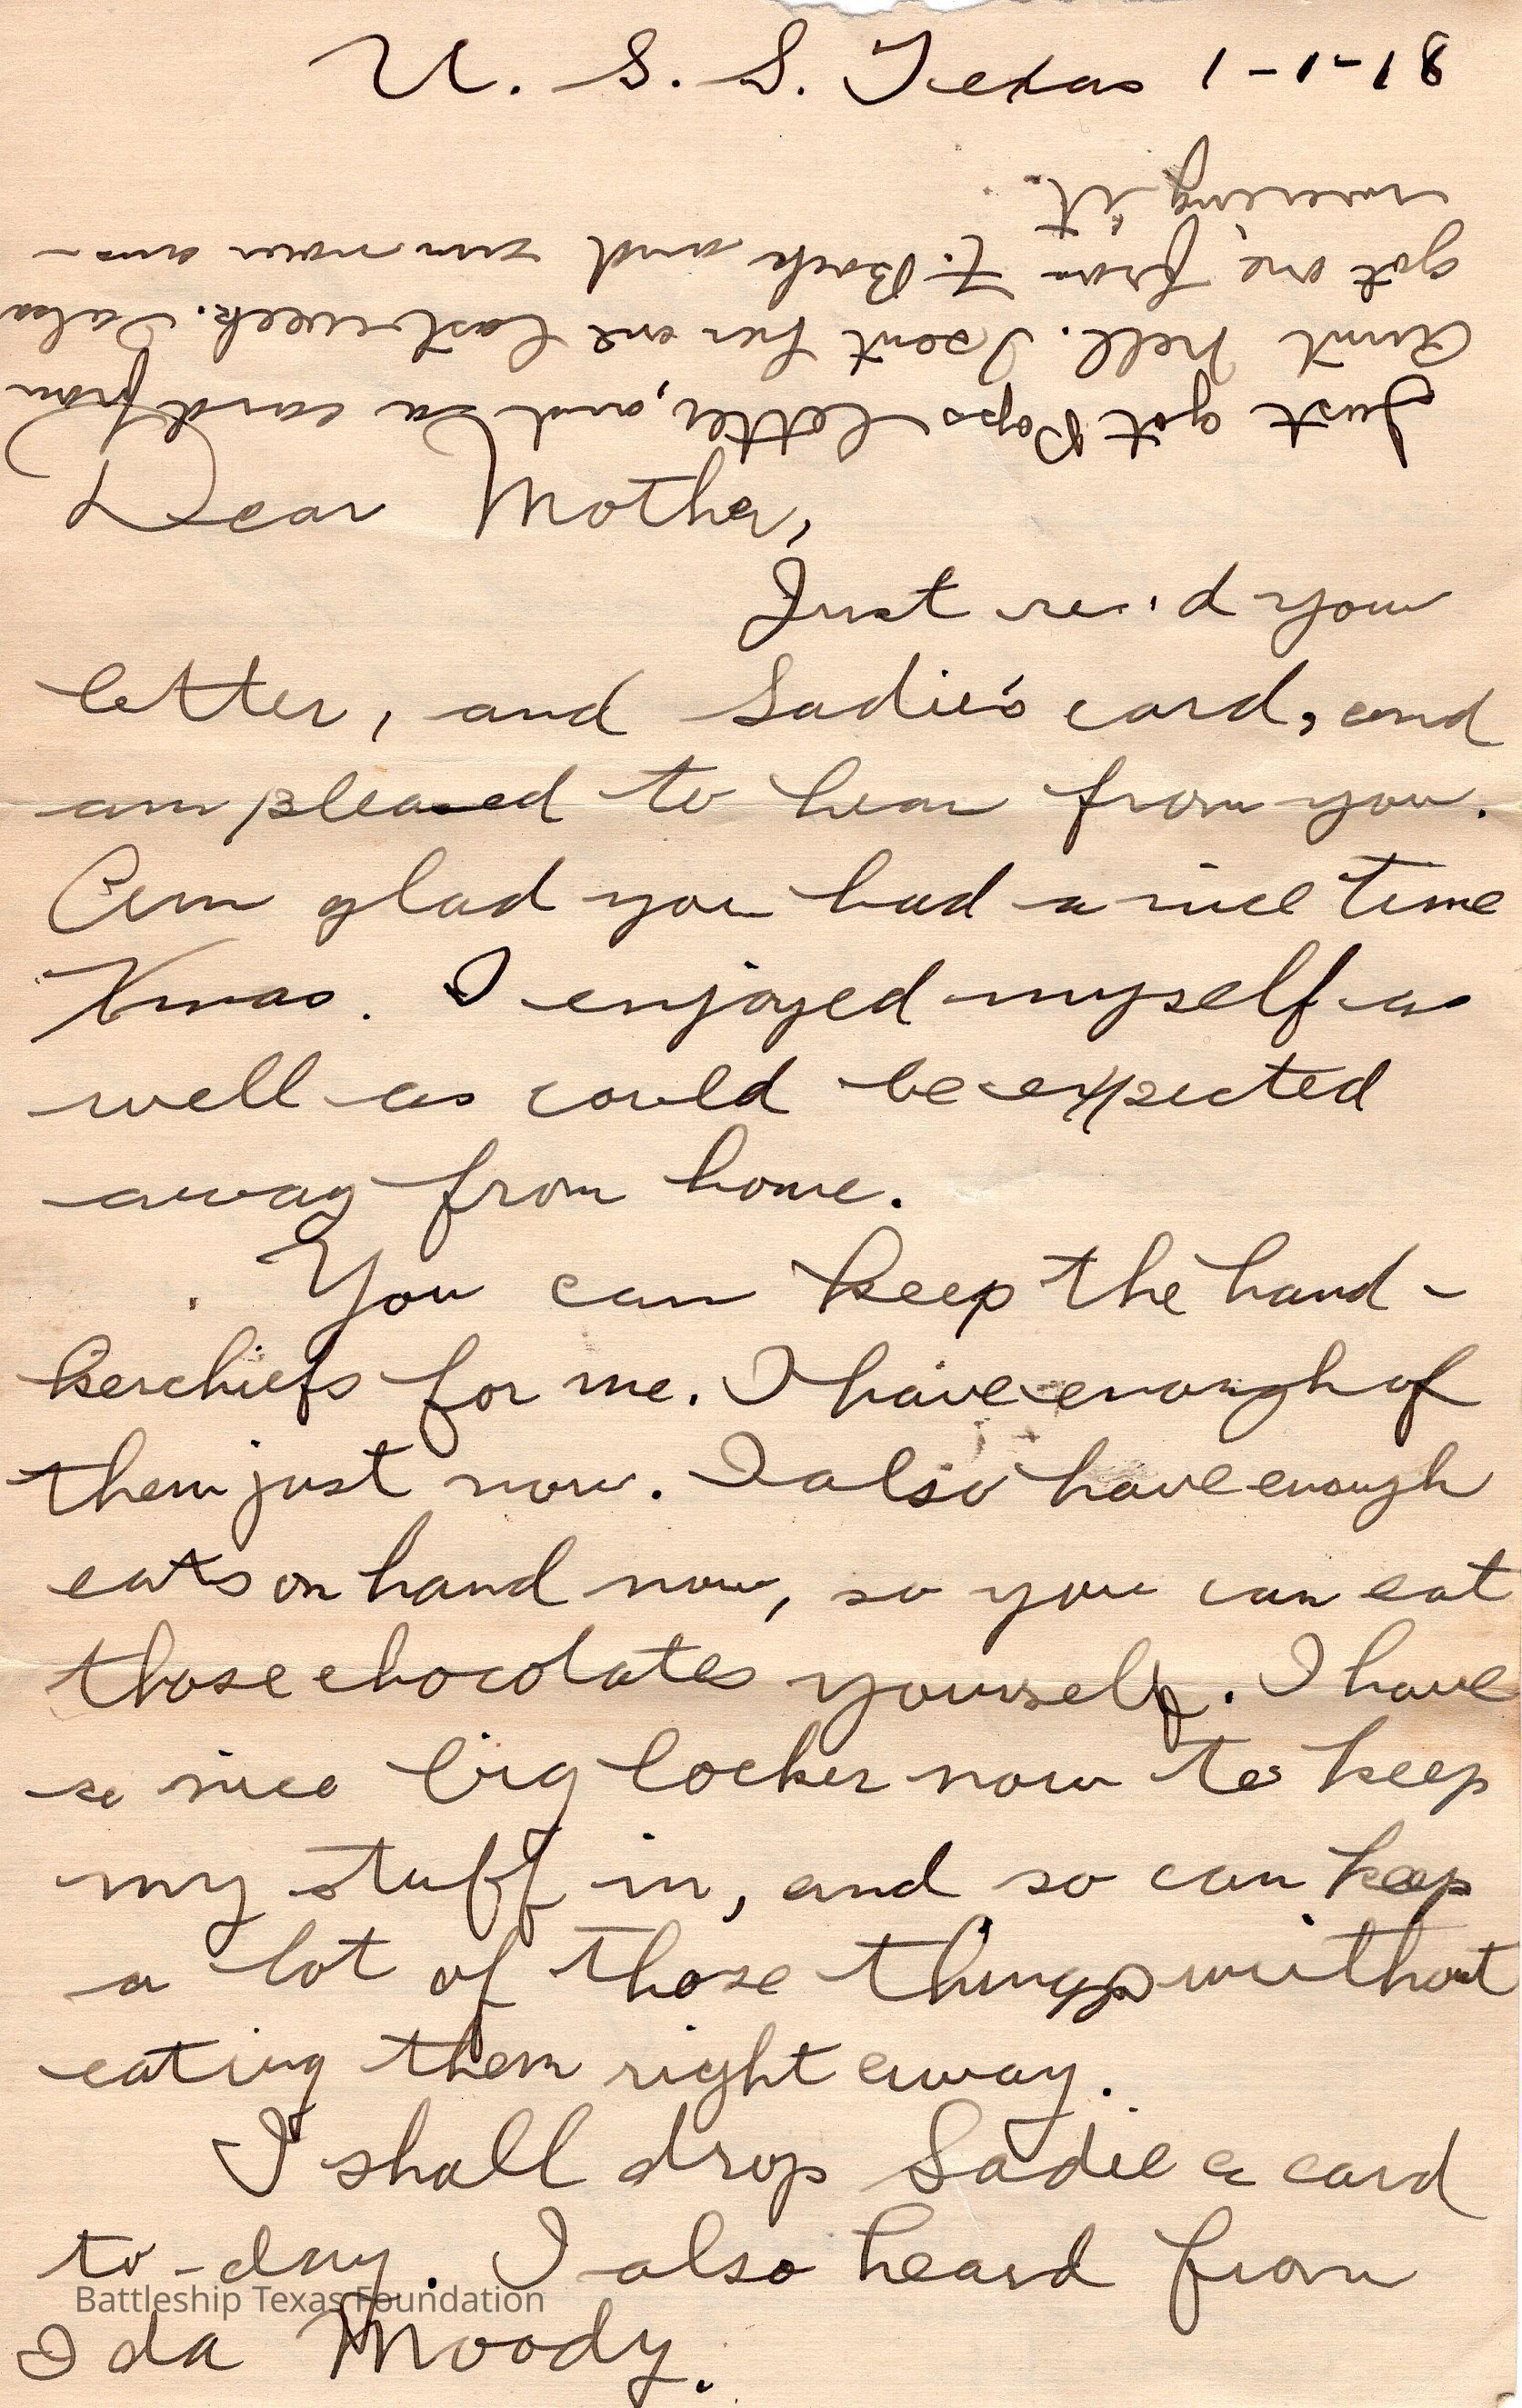 U. S. S. Texas 1-1-18
Dear Mother,
Just rec'd your
letter, and Sadie's card, and
am pleased to hear from you.
Am glad you had a nice time
Xmas. I enjoyed myself as
well as could be expected
away from home.
You can keep the hand-
kerchiefs for me. I have enough of
them just now. I also have enough
eats on hand now, so you can eat
those chocolates yourself. I have
a nice big locker now to keep
my stuff in, and so can keep
a lot of those things without
eating them right away.
I shall drop Sadie a card
to-day. I also heard from
Ida Moody.
Just got Pops letter, and a card from
Aunt Nell. I sent her one last week. I also
got one from and am now ans-
wering it.
Battleship Texas Foundation